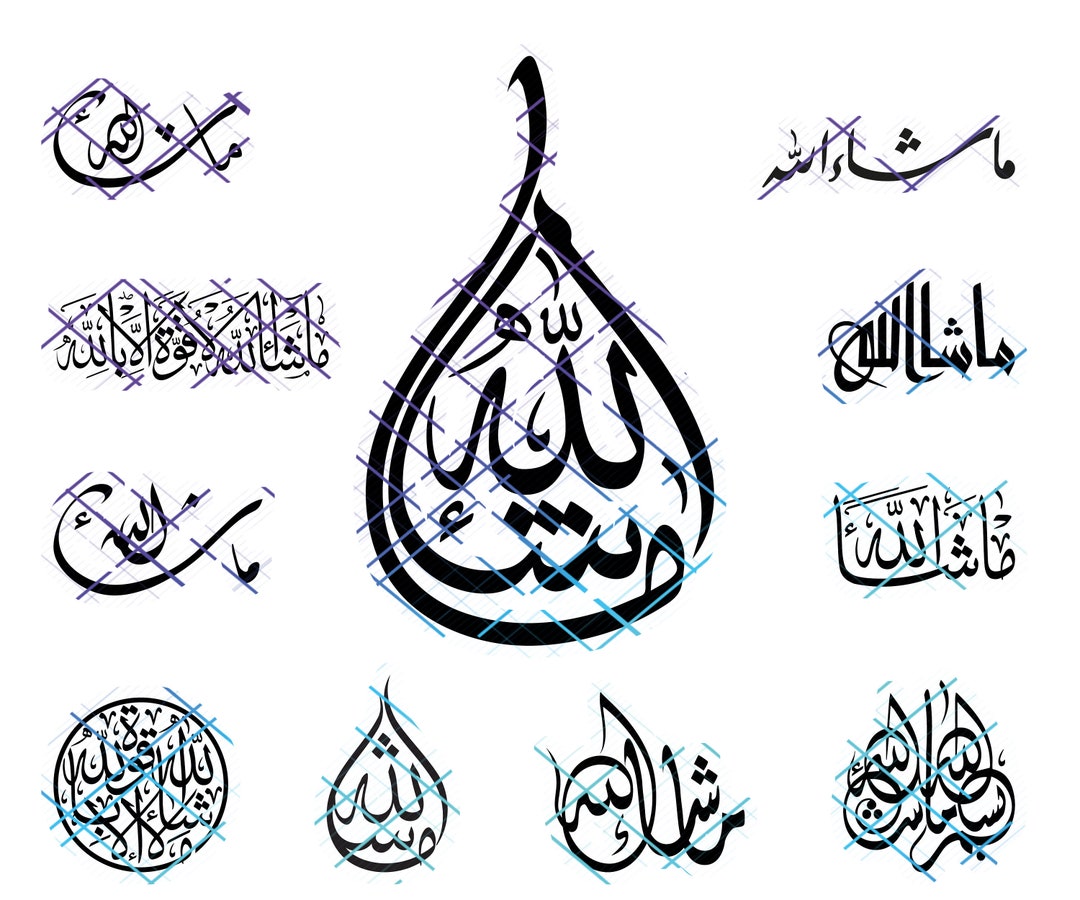 ما شاء الله
ما شاء الله
ما شاء الله
ما شاء الله لا قوة إلا بالله
ما شاء الله
ما شاء الله
ما شاء الله
ما شاء الله لا قوة إلا بالله
ما شاء الله
ما شاء الله
بسم الله ما شاء الله